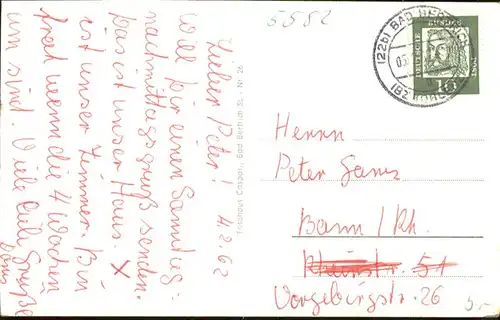 5582
Lieber Peter! 4.2.62
Will Dir einen Sonntag-
nachmittagsgruß senden.
Das ist unser Haus. X
ist unser Zimmer. Bin
froh wenn die 4 Wochen
um sind. Viele liebe Grüße
Fotohaus Caspary, Bad Bertrich SL. - Nr. 26
(22b) BAD BERTRICH
DEUTSCHE BUNDESPOST
10
Herrn
Peter Gans
Bonn / Rh.
Rheinstr. 51
Vorgebirgstr. 26